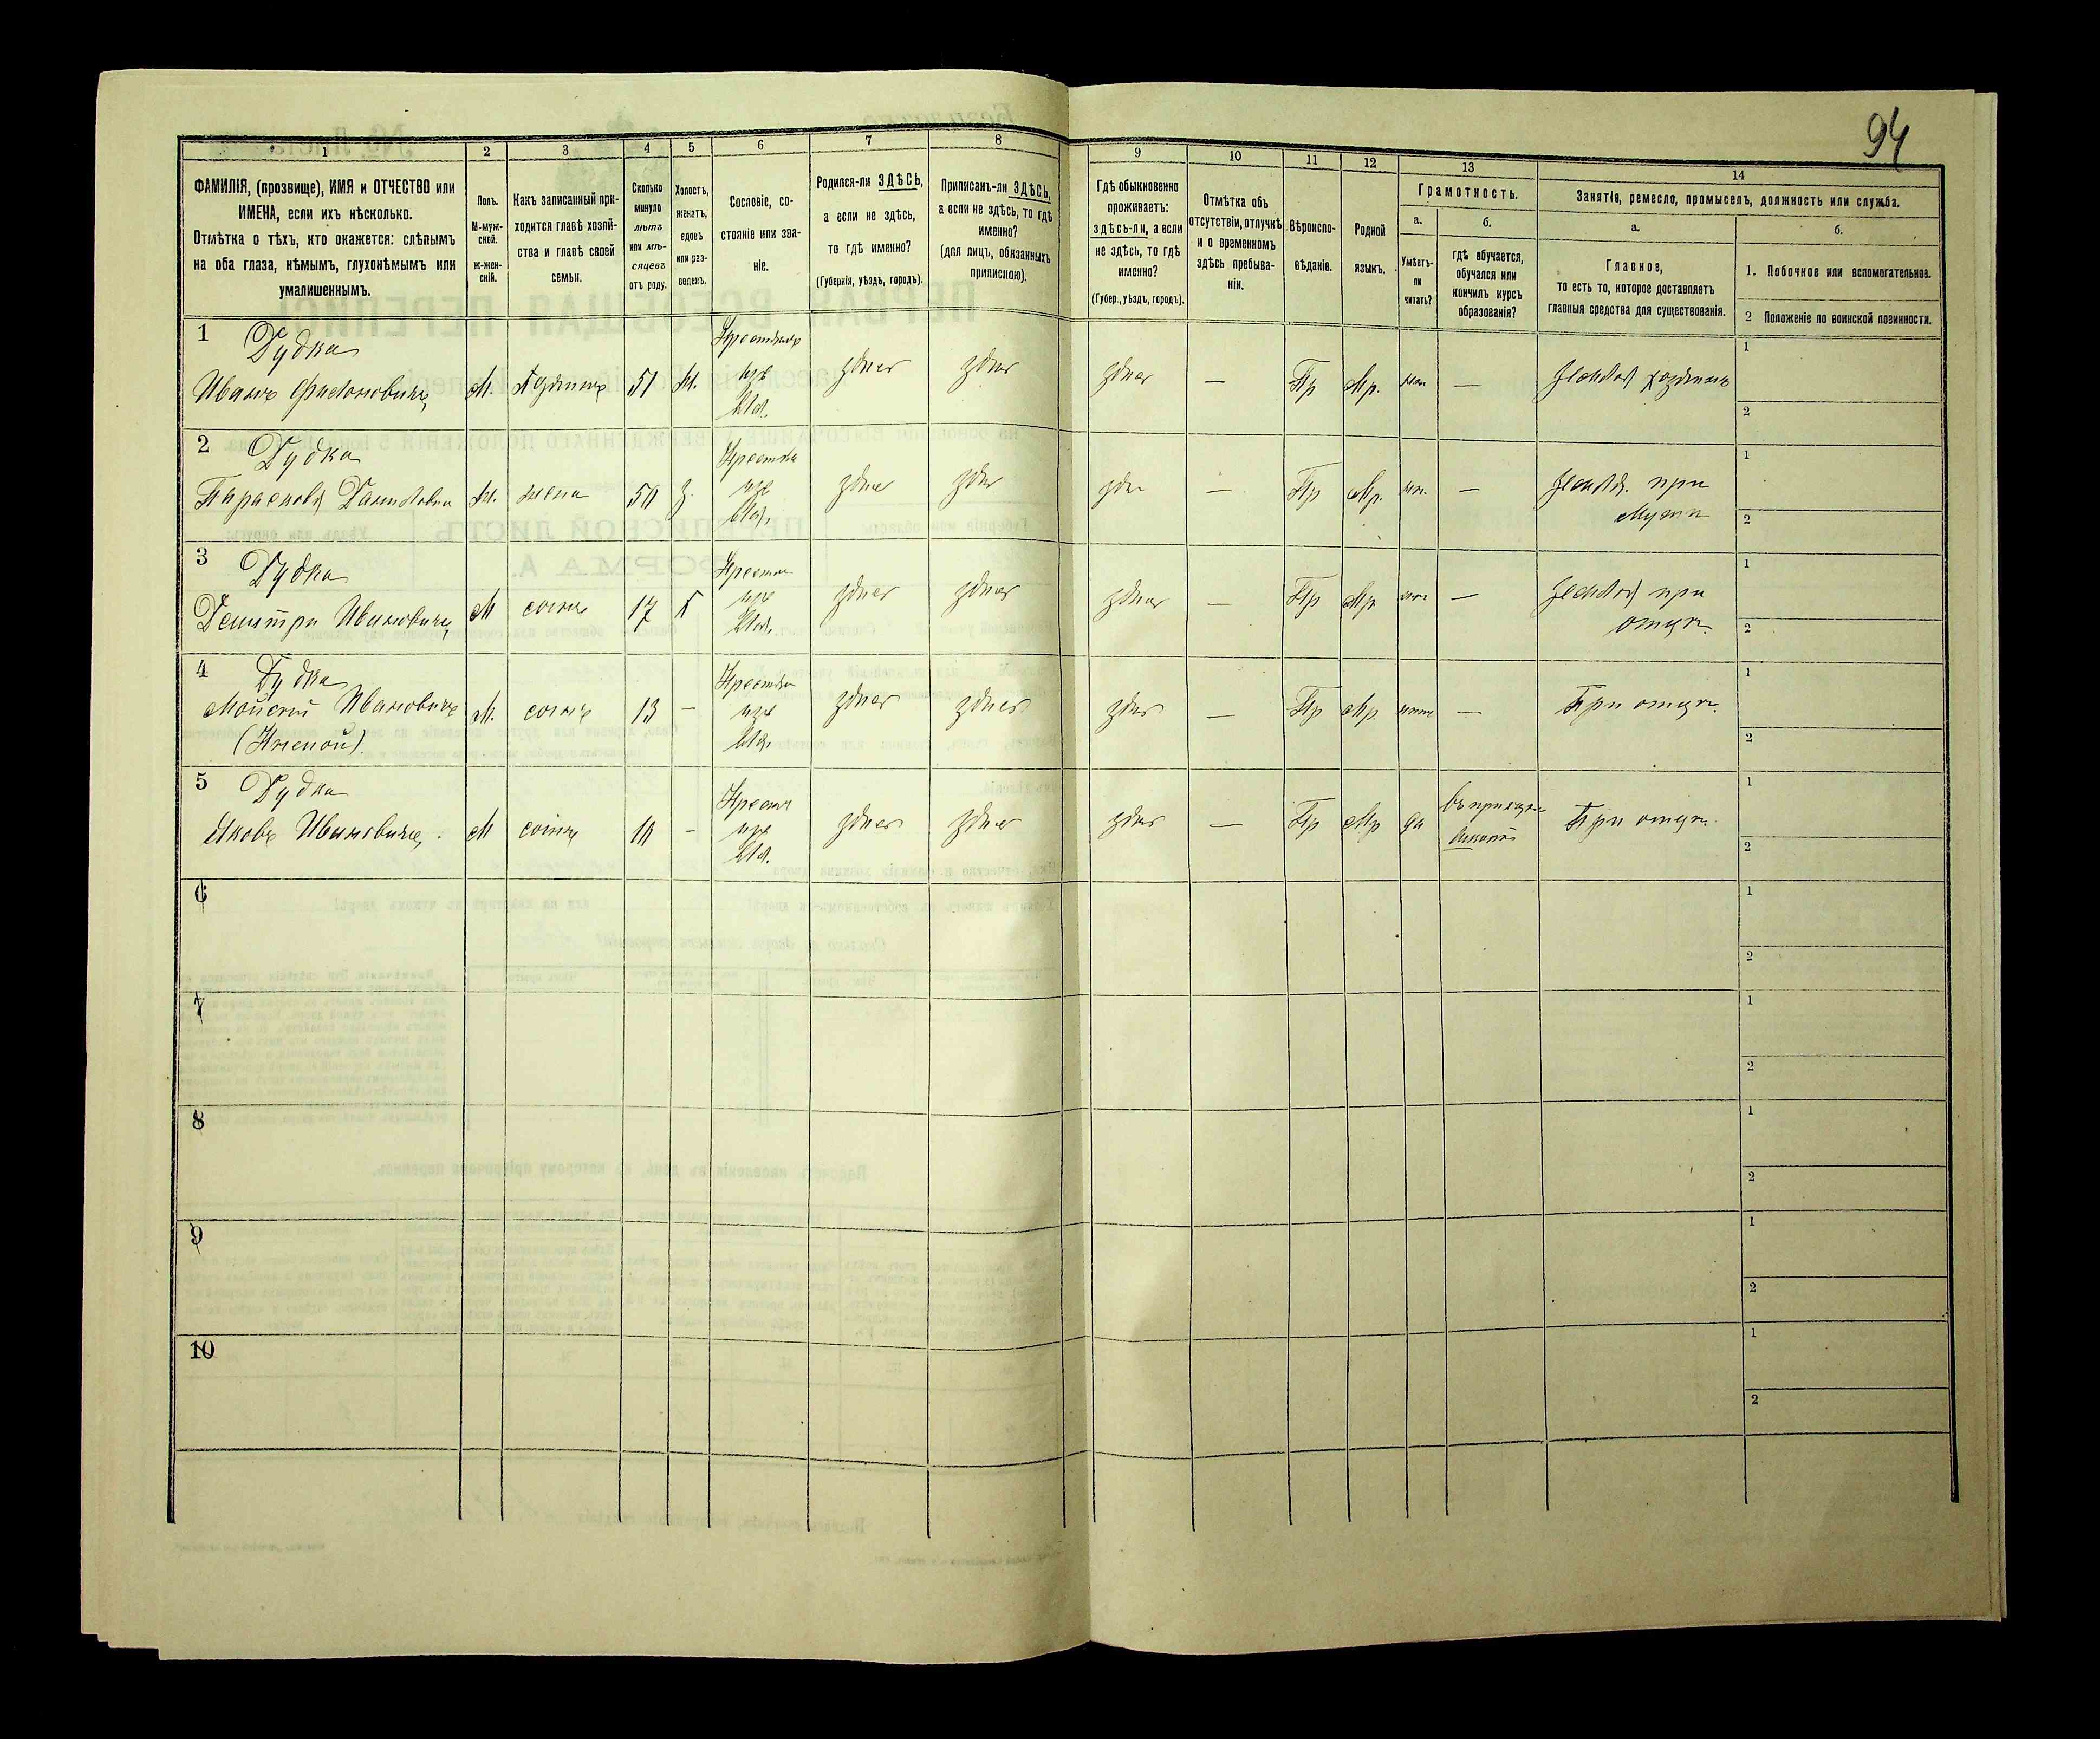 94
1 2 3 4 5 6 7 8 9 10 11 12 13 14
ФАМИЛІЯ, (прозвище), ИМЯ и ОТЧЕСТВО или
ИМЕНА, если ихъ нѣсколько.
Отмѣтка о тѣхъ, кто окажется: слѣпымъ
на оба глаза, нѣмымъ, глухонѣмымъ или
умалишеннымъ.
Полъ.
М-муж-
ской.
ж-жен-
скій.
Какъ записанный при-
ходится главѣ хозяй-
ства и главѣ своей
семьи.
Сколько
минуло
лѣтъ
или мѣ-
сяцевъ
отъ роду.
Холостъ,
женатъ,
вдовъ
или раз-
веденъ.
Сословіе, со-
стояніе или зва-
ніе.
Родился-ли ЗДѢСЬ,
а если не здѣсь,
то гдѣ именно?
(Губернія, уѣздъ, городъ).
Приписанъ-ли ЗДѢСЬ,
а если не здѣсь, то гдѣ
именно?
(для лицъ, обязанныхъ
припискою).
Гдѣ обыкновенно
проживаетъ:
здѣсь-ли, а если
не здѣсь, то гдѣ
именно?
(Губер., уѣздъ, городъ).
Отмѣтка объ
отсутствіи, отлучкѣ
и о временномъ
здѣсь пребыва-
ніи.
Вѣроиспо-
вѣданіе.
Родной
языкъ.
Грамотность.
а.
Умѣетъ-
ли
читать?
б.
гдѣ обучается,
обучался или
кончилъ курсъ
образованія?
Занятіе, ремесло, промыселъ, должность или служба.
а.
Главное,
то есть то, которое доставляетъ
главныя средства для существованія.
б.
1. Побочное или вспомогательное.
2 Положеніе по воинской повинности.
1 Дудка
Иванъ Филоновичъ М. хозяинъ 51 ж. здѣсь здѣсь здѣсь — Пр Мр. — хозяинъ
изъ
1
2
2 Дудка
Параскова Даниловна жена здѣсь здѣсь здѣсь — Пр Мр. — при
изъ мужѣ
1
2
3 Дудка
Дмитри Ивановичъ М сынъ 17 х здѣсь здѣсь здѣсь — Пр Мр — при
изъ отцѣ.
1
2
4 Дудка
Ивановичъ М. сынъ 13 — здѣсь здѣсь здѣсь — Пр Мр. — При отцѣ.
изъ
1
2
5 Дудка
Яковъ Ивановичъ М сынъ — здѣсь здѣсь здѣсь — Пр Мр да При отцѣ.
изъ
1
2
6
1
2
7
1
2
8
1
2
9
1
2
10
1
2